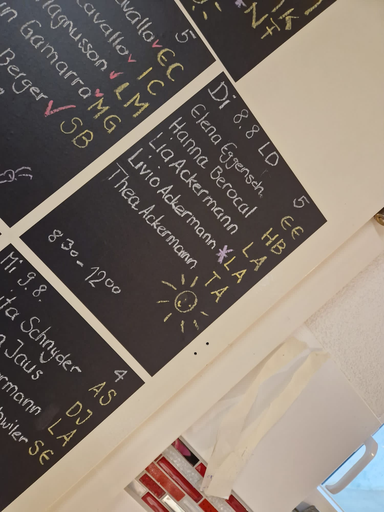 5
Cavallo EC
Cavallo IC
Magnusson LM
Gamarra MG
Berger SB
Di 8.8 LD 5
Elena Eggensch. EE
Hanna Berocal HB
Lia Ackermann LA
Livio Ackermann *LA
Thea Ackermann TA
8:30 - 12:00
Mi 9.8. 4
Schnyder AS
Jaus DJ
LA
SE